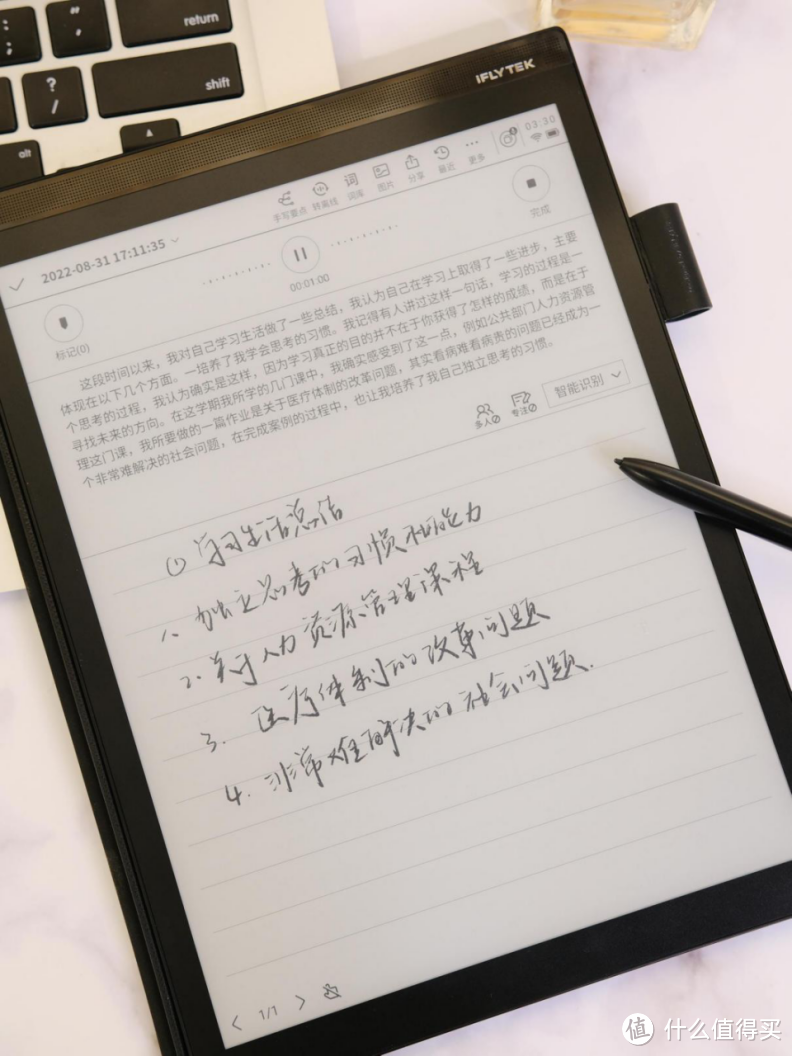 return
shift
?
/
alt
iFLYTEK
03:30
手写重点 转离线 词库 图片 分享 最近 更多
2022-08-31 17:11:35
00:01:00
完成
标记(0)
这段时间以来，我对自己学习生活做了一些总结，我认为自己在学习上取得了一些进步，主要
体现在以下几个方面。一培养了我学会思考的习惯。我记得有人讲过这样一句话，学习的过程是一
个思考的过程，我认为确实是这样，因为学习真正的目的并不在于你获得了怎样的成绩，而是在于
寻找未来的方向。在这学期我所学的几门课中，我确实感受到了这一点，例如公共部门人力资源管
理这门课，我所要做的一篇作业是关于医疗体制的改革问题，其实看病难看病贵的问题已经成为一
个非常难解决的社会问题，在完成案例的过程中，也让我培养了我自己独立思考的习惯。
多人 专注 智能识别
① 学习生活总结
1. 独立思考的习惯和能力
2. 关于人力资源管理课程
3. 医疗体制的改革问题
4. 非常难解决的社会问题.
1/1
值 什么值得买